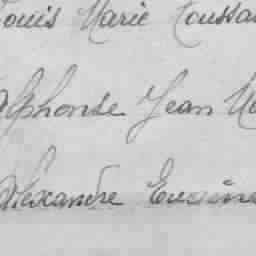 Louis Marie Toussai
Alphonse Jean Ma
Alexandre Eugène